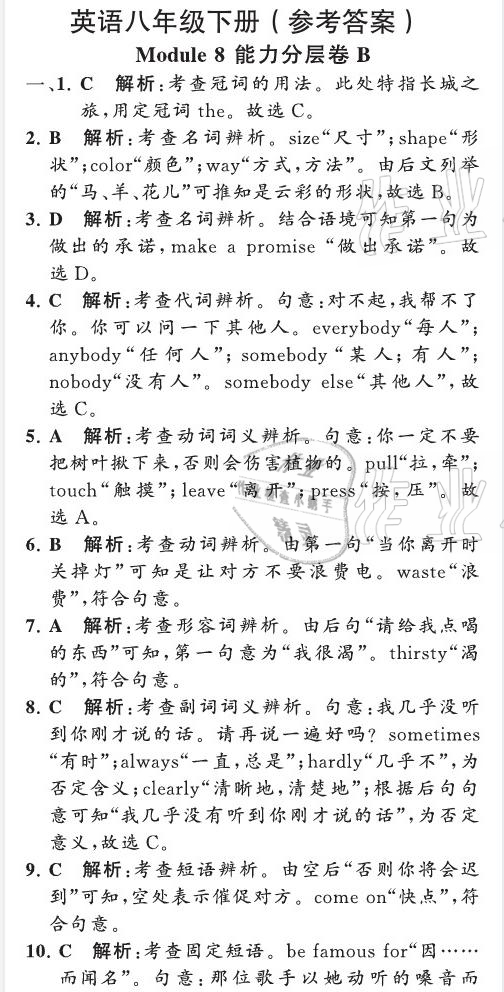 英语八年级下册(参考答案)
Module 8 能力分层卷 B
一、1. C 解析:考查冠词的用法。此处特指长城之
旅,用定冠词 the。故选 C。
2. B 解析:考查名词辨析。size“尺寸”;shape“形
状”;color“颜色”;way“方式,方法”。由后文列举
的“马、羊、花儿”可推知是云彩的形状,故选 B。
3. D 解析:考查名词辨析。结合语境可知第一句为
做出的承诺,make a promise “做出承诺”。故
选 D。
4. C 解析:考查代词辨析。句意:对不起,我帮不了
你。你可以问一下其他人。everybody“每人”;
anybody“任何人”;somebody“某人;有人”;
nobody“没有人”。somebody else“其他人”,故
选 C。
5. A 解析:考查动词词义辨析。句意:你一定不要
把树叶揪下来,否则会伤害植物的。pull“拉,牵”;
touch“触摸”;leave“离开”;press“按,压”。故
选 A。
6. B 解析:考查动词辨析。由第一句“当你离开时
关掉灯”可知是让对方不要浪费电。waste“浪
费”,符合句意。
7. A 解析:考查形容词辨析。由后句“请给我点喝
的东西”可知,第一句意为“我很渴”。thirsty“渴
的”,符合句意。
8. C 解析:考查副词词义辨析。句意:我几乎没听
到你刚才说的话。请再说一遍好吗?sometimes
“有时”;always“一直,总是”;hardly“几乎不”,为
否定含义;clearly“清晰地,清楚地”;根据后句句
意可知“我几乎没有听到你刚才说的话”,为否定
意义,故选 C。
9. C 解析:考查短语辨析。由空后“否则你将会迟
到”可知,空处表示催促对方。come on“快点”,符
合句意。
10. C 解析:考查固定短语。be famous for“因……
而闻名”。句意:那位歌手以她动听的嗓音而